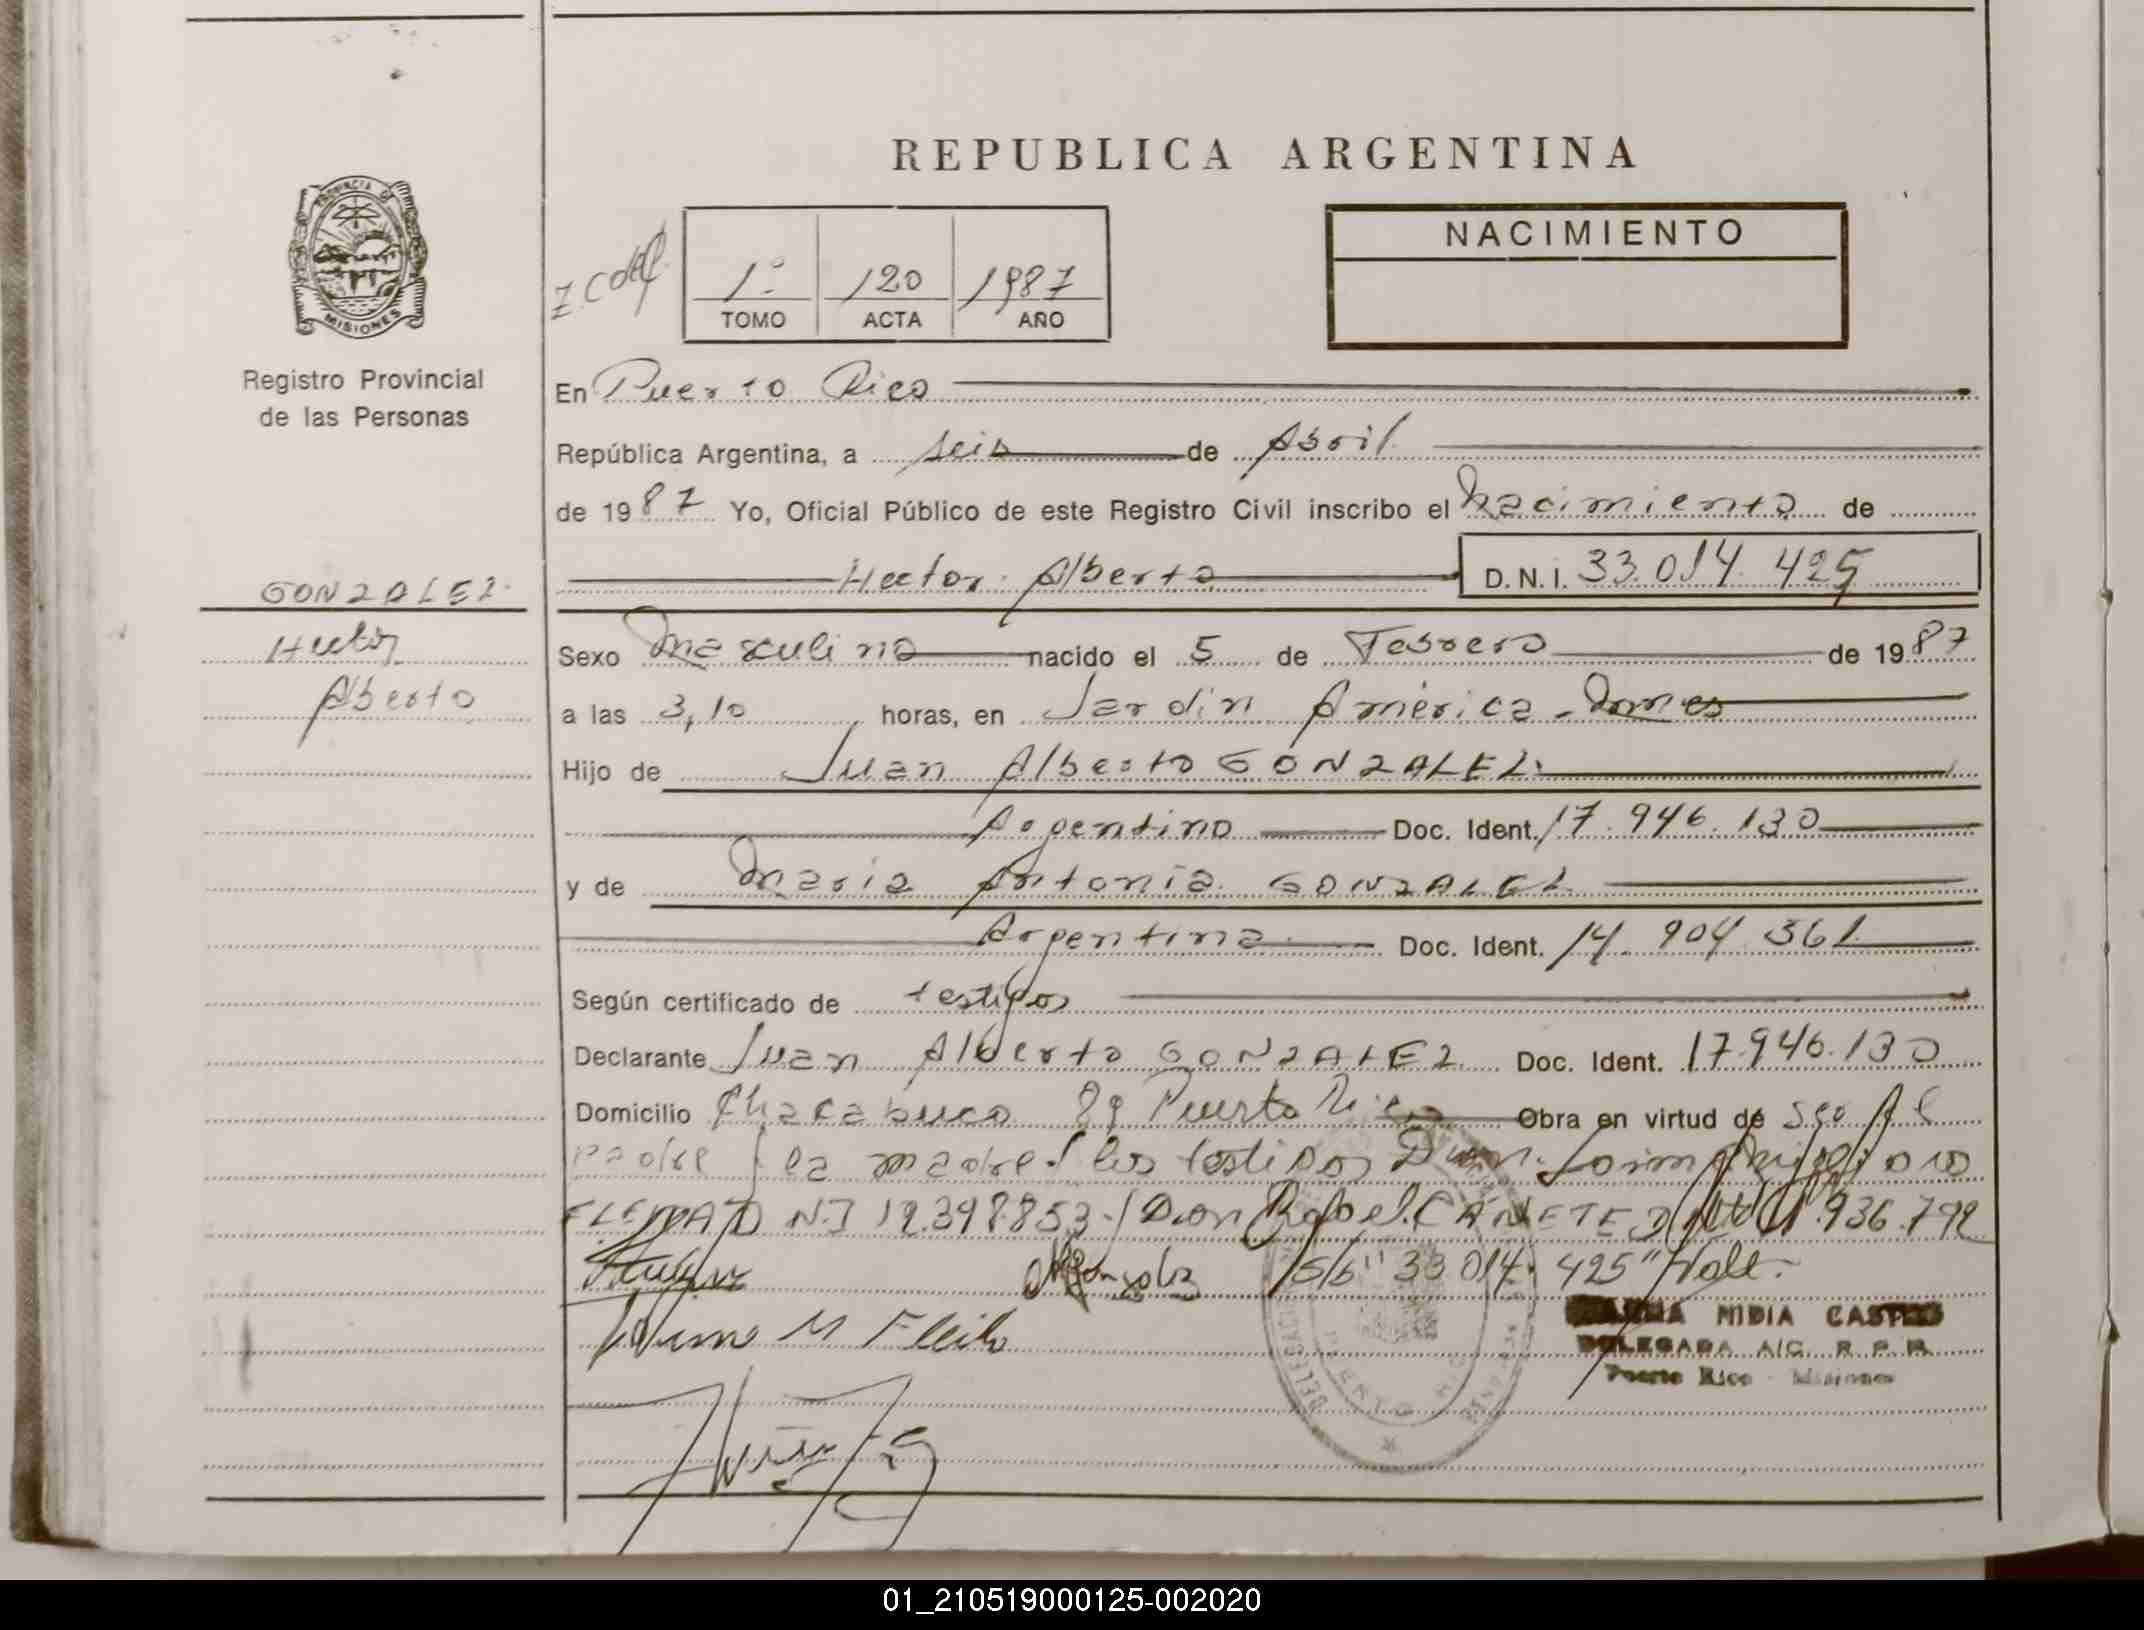 REPUBLICA ARGENTINA
PROVINCIA DE
MISIONES
Registro Provincial
de las Personas
1º 120 1987
TOMO ACTA AÑO
NACIMIENTO
En Puerto Rico
República Argentina, a seis de Abril
de 1987 Yo, Oficial Público de este Registro Civil inscribo el Nacimiento de
Hector Alberto D.N.I. 33.014.425
GONZALEZ
Hector
Alberto
Sexo Masculino nacido el 5 de Febrero de 1987
a las 3,10 horas, en Jardin América - Mnes
Hijo de Juan Alberto GONZALEZ
Argentino Doc. Ident. 17.946.130
y de Maria Antonia GONZALEZ
Argentina Doc. Ident. 14.904.361
Según certificado de testigos
Declarante Juan Alberto GONZALEZ Doc. Ident. 17.946.130
Domicilio Chacabuco 89 Puerto Rico Obra en virtud de
padre y la madre los testigos
12.398.853 Don CAÑETE 936.792
"33 014. 425" Vale.
NIDIA
DELEGADA A/C. R. P. P.
Puerto Rico - Misiones
01_210519000125-002020